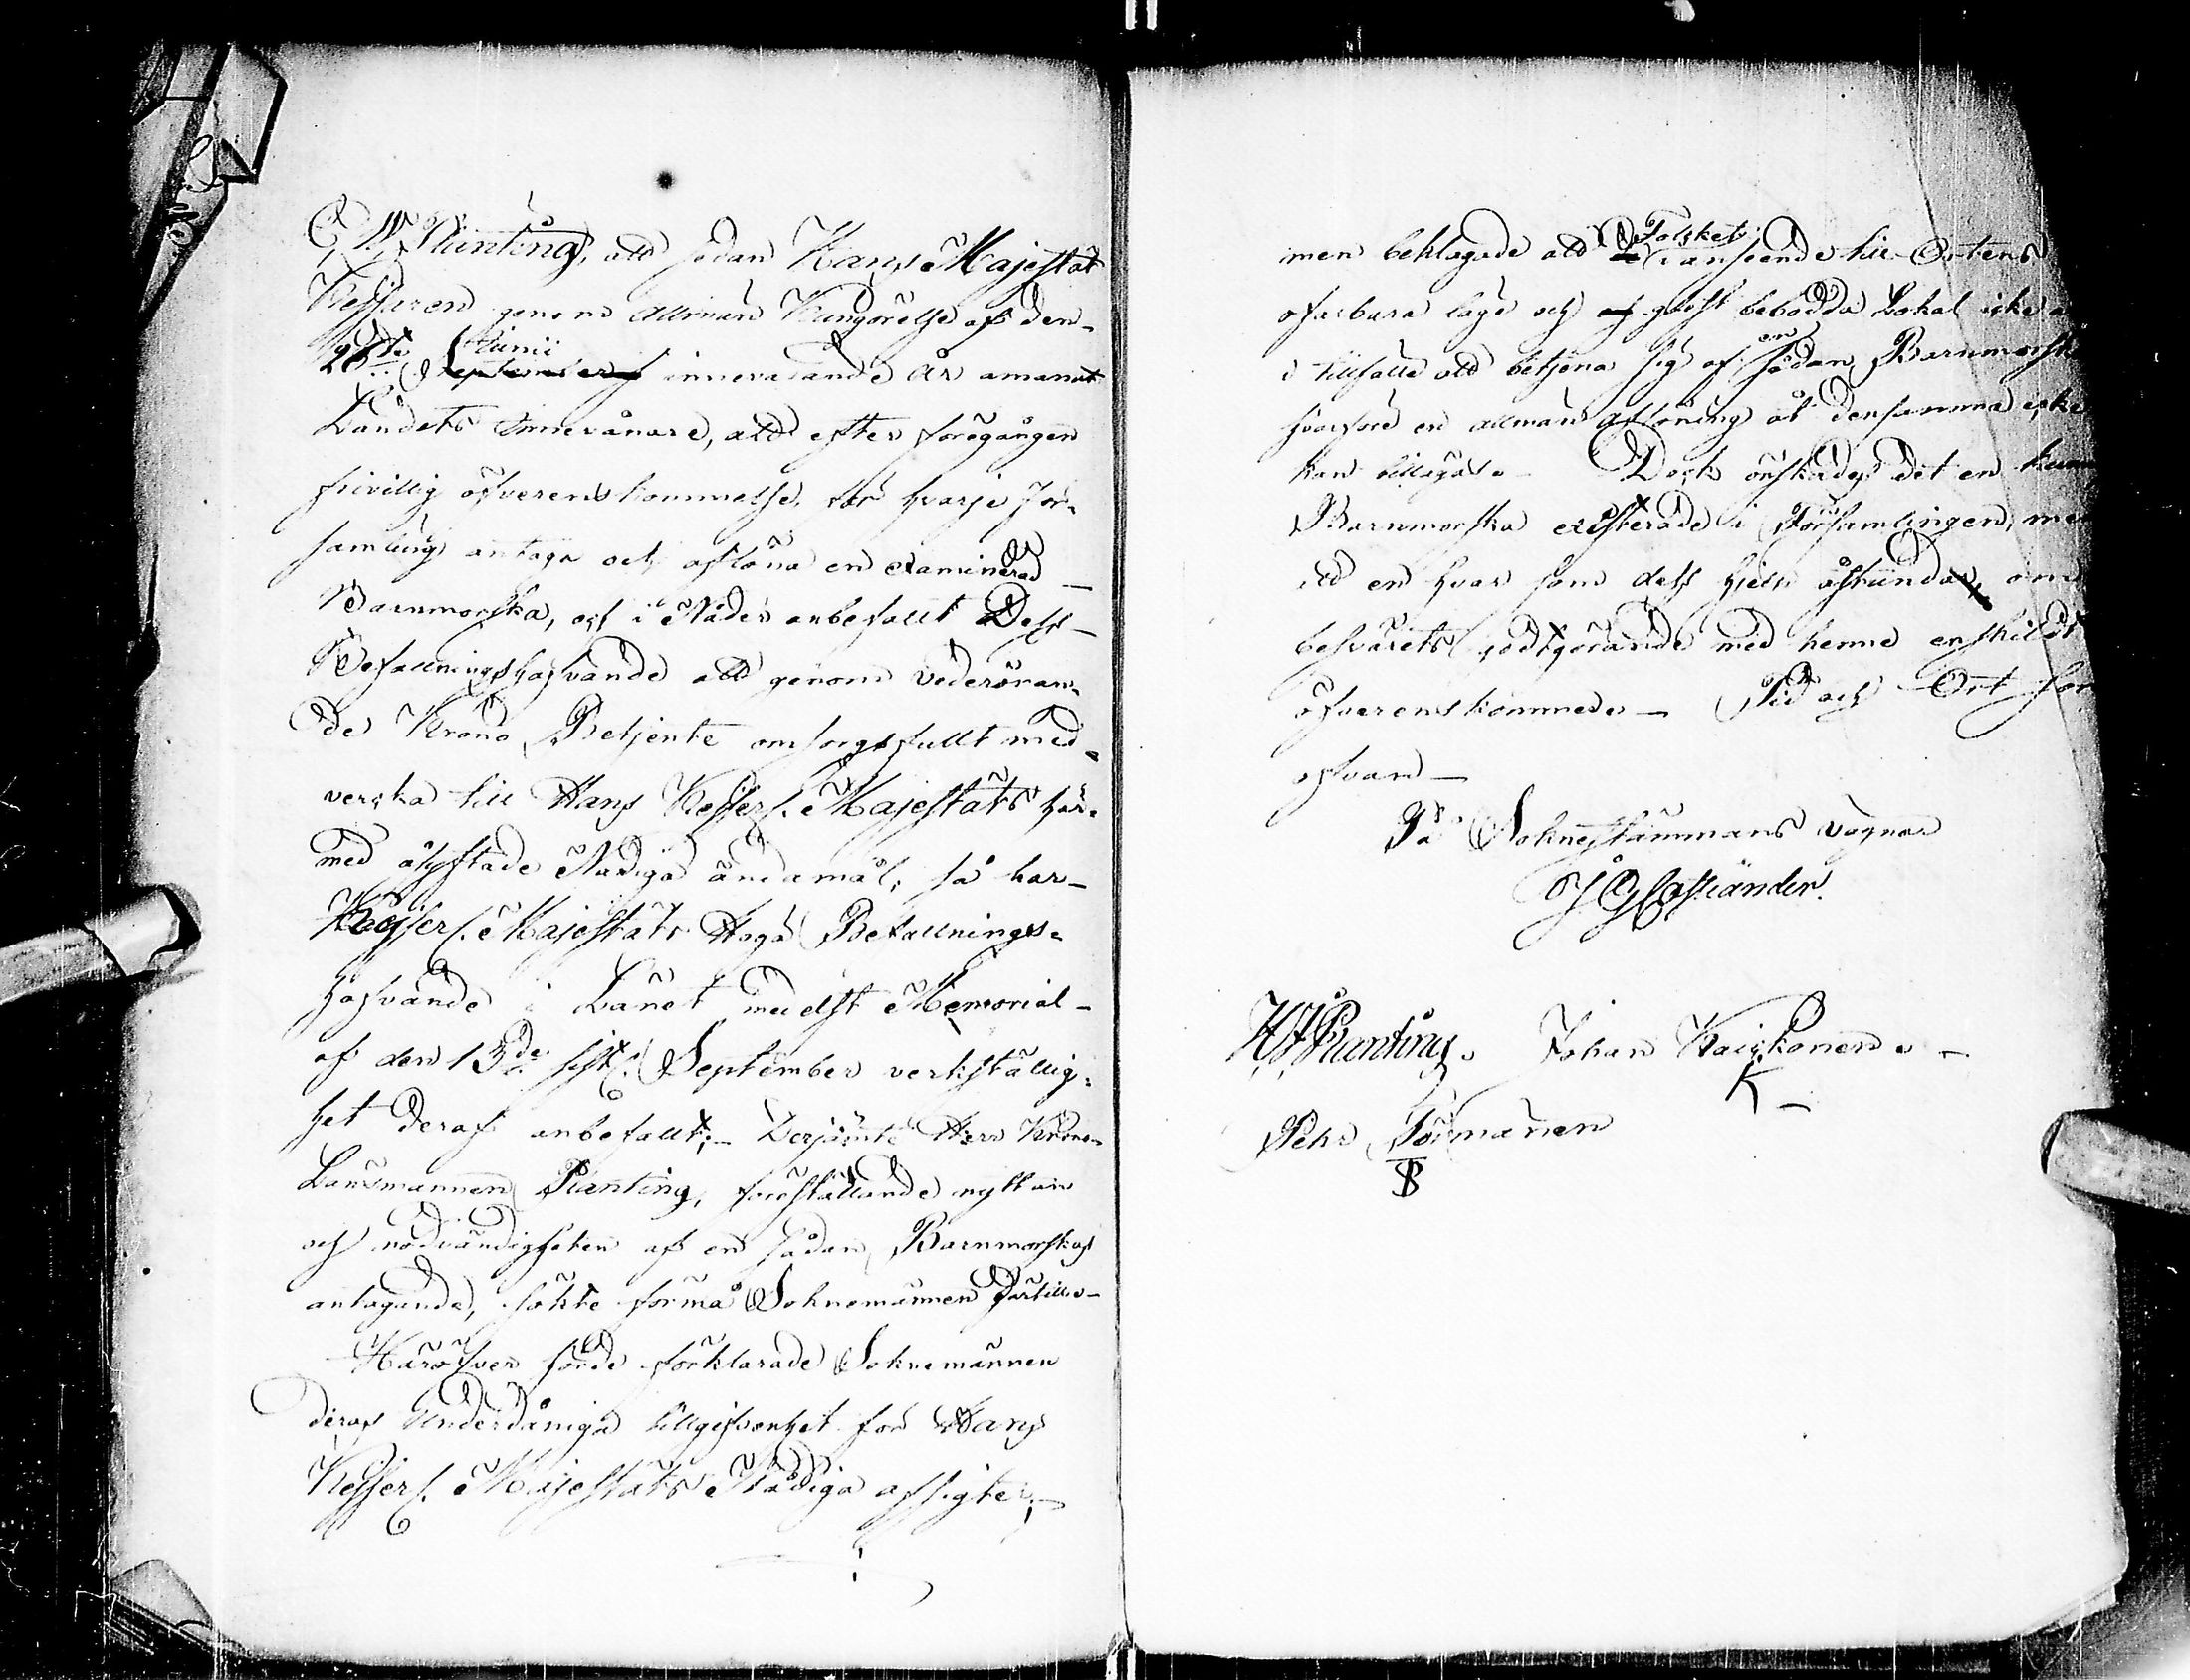 C. W. Planting, att sedan Hans Majestät
Kejsaren genom Allmän Kungörelse af den
26de Junii September innevarande år amanat
Landets Innevånare, att efter föregången
frivillig öfverenskommelse, för hvarje För-
samling antaga och aflöna en examinerad
Barnmorska, och i Nåder anbefallt Dess
Befallningshafvande att genom vederböran-
de Krono Betjente omsorgsfullt med-
verska till Hans Kejserl. Majestäts här-
med åsyftade Nådiga ändamål, så har
Kejserl. Majestäts Höga Befallnings-
hafvande i Länet medelst Memorial
af den 13de sistl. September verkställig-
het deraf anbefallt; Derjämte Herr Krono
Länsmannen Planting, föreställande nyttan
och nödvändigheten af en sådan Barnmorskas
antagande, sökte förmå Soknemännen härtill.
Häröfver hörde förklarade Soknemännen
deras Underdåniga tillgifvenhet för Hans
Kejserl. Majestäts Nådiga afsigter;
men beklagade att Folket i anseende till Ortens
ofarbara läge och glest bebodda Lokal icke
i tillfälle att betjena sig af en sådan Barnmorsk
hvarföre en allmän aflöning åt densamma icke
kan tillägas. Dock önskades det en
Barnmorska existerade i Församlingen, me
att en hvar som dess hjelp åstundar, om
besvärets godtgörande med henne enskildt
öfverenskommer. Tid och Ort som
ofvan
På Soknestämmans vägnar
J G Castrander.
C W Planting. Johan Kaiskonen.
K
Pehr Törmänen